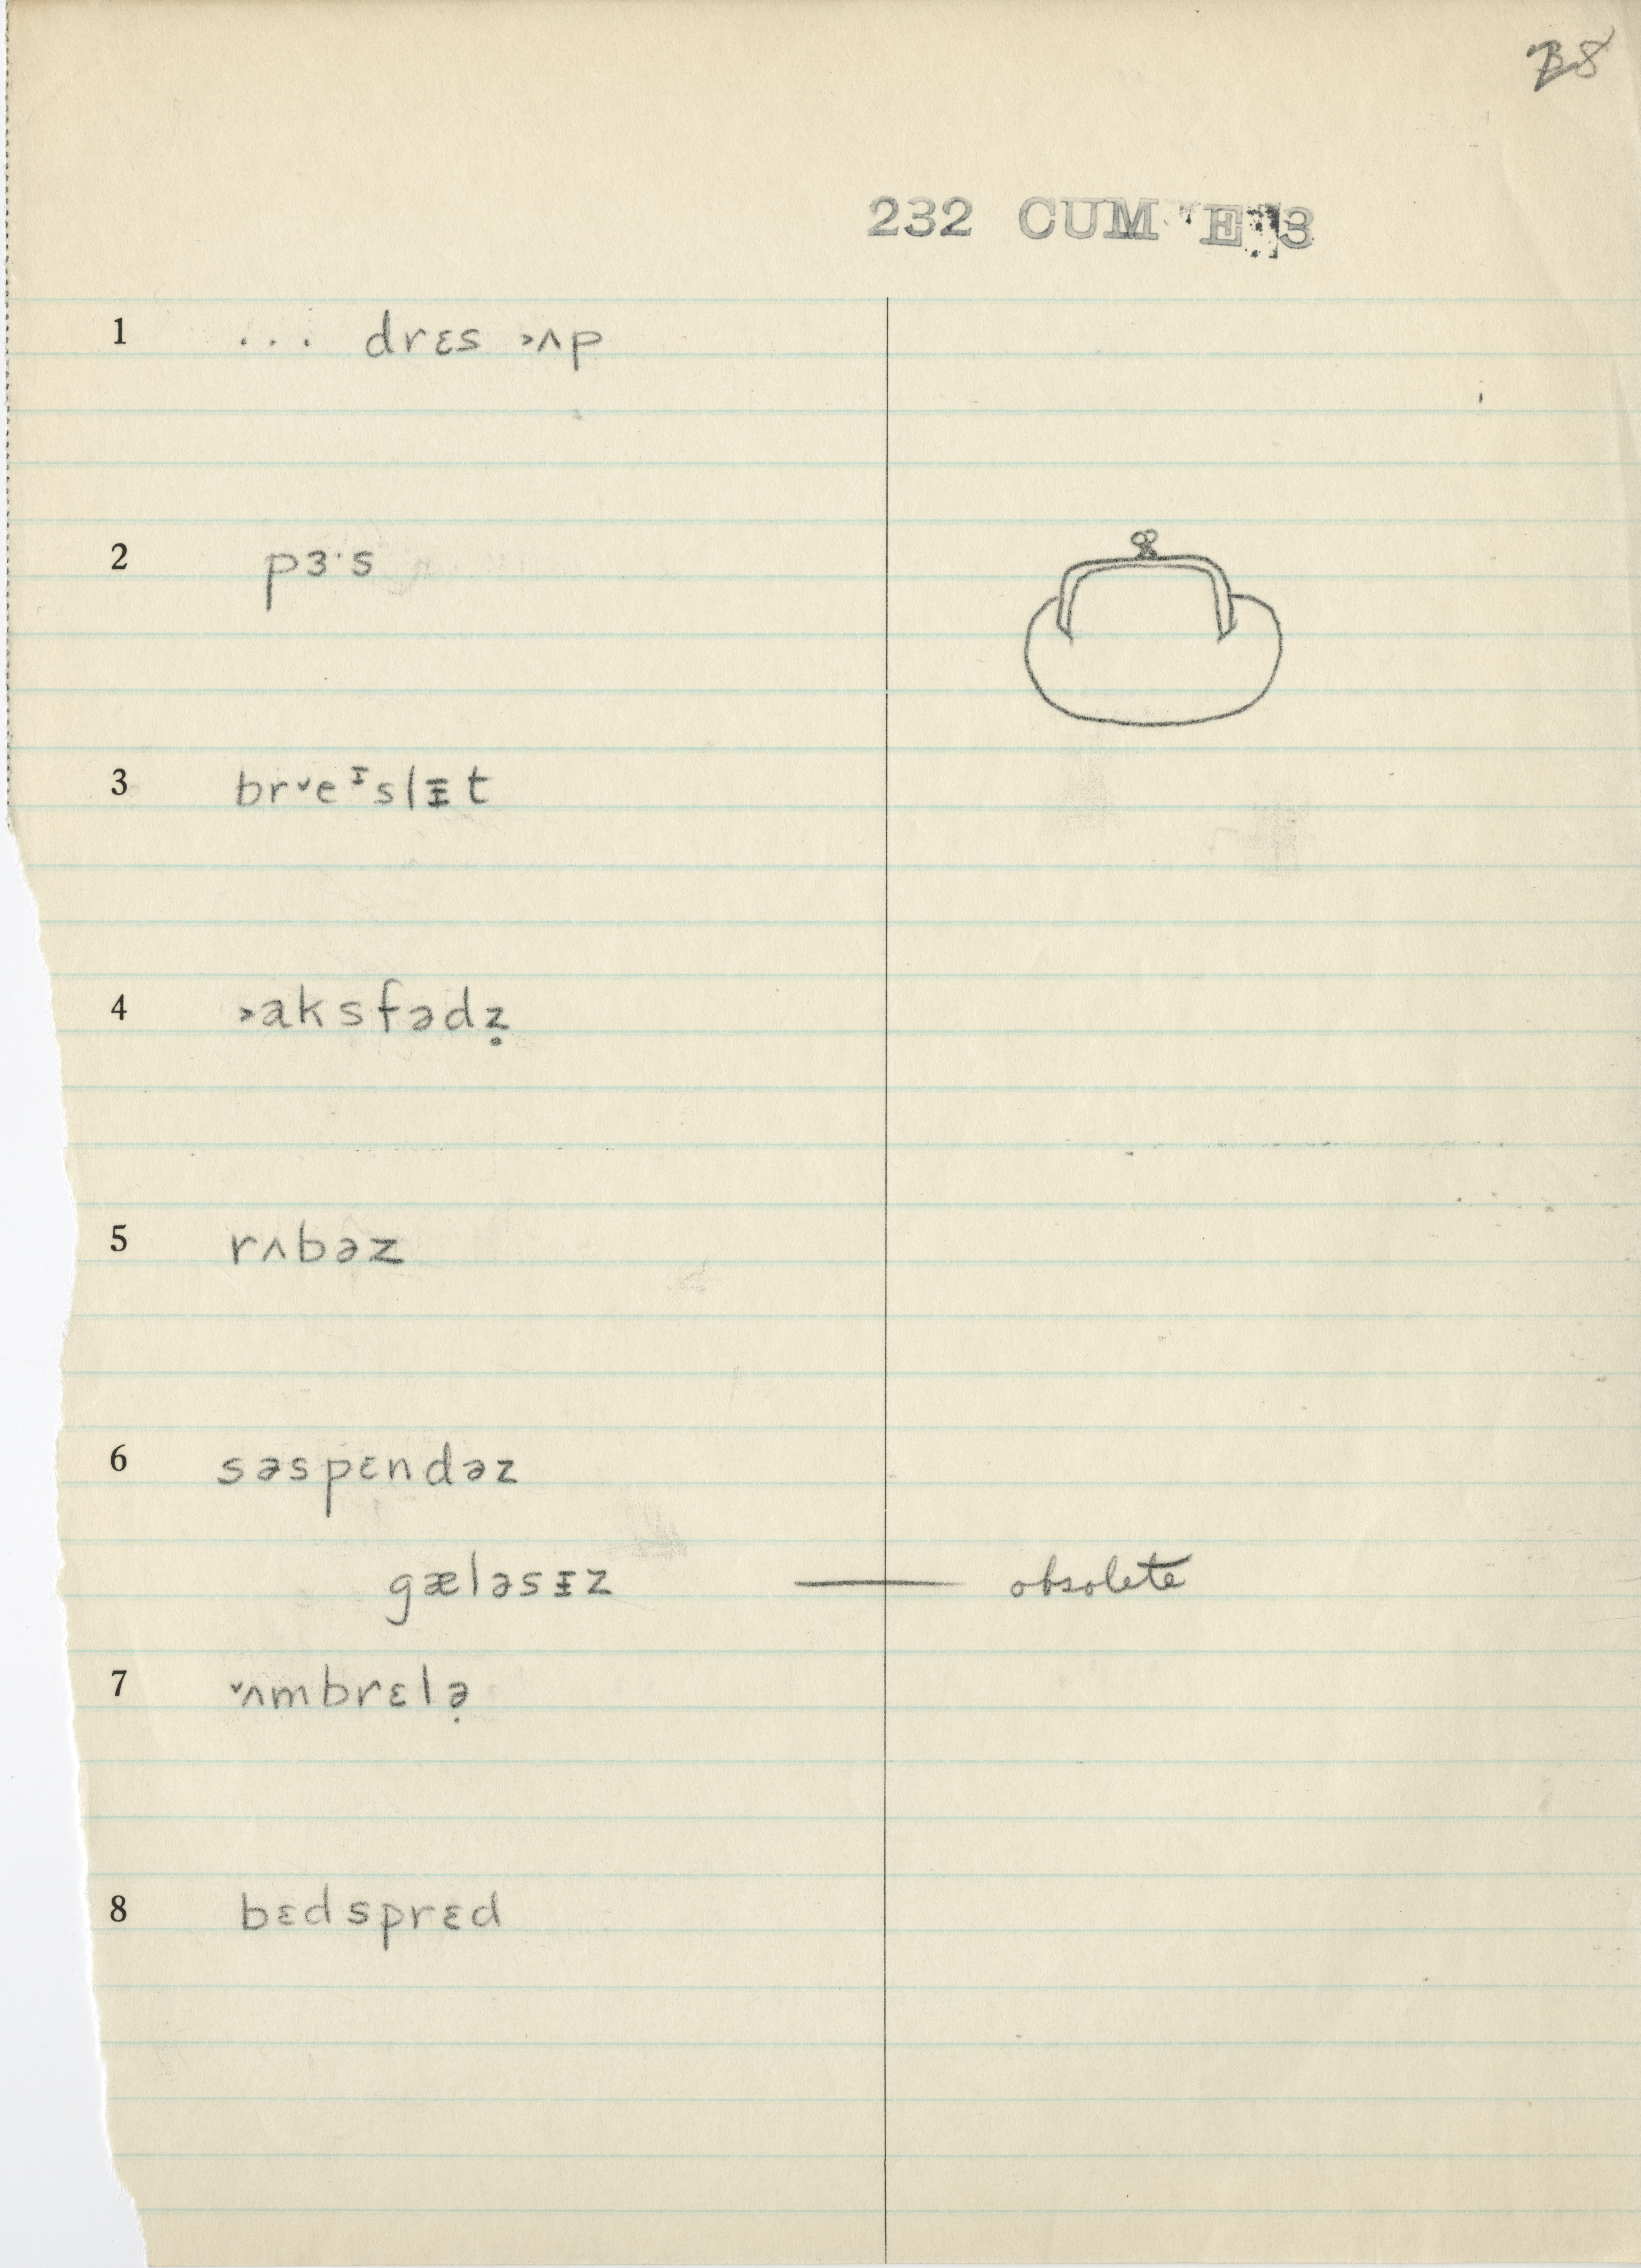 232 CUM E 3
1 ... drɛs ˃ʌp
2 pɜ·s
3 br˅eᶦslᵻt
4 ˃aksfədz̥
5 rʌbəz
6 səspɛndəz
gæləsᵻz — obsolete
7 ˅ʌmbrɛlə̣
8 bɛdsprɛd